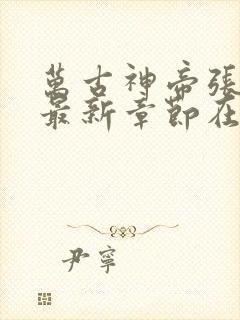 萬古神帝張
最新章節在
尹寧